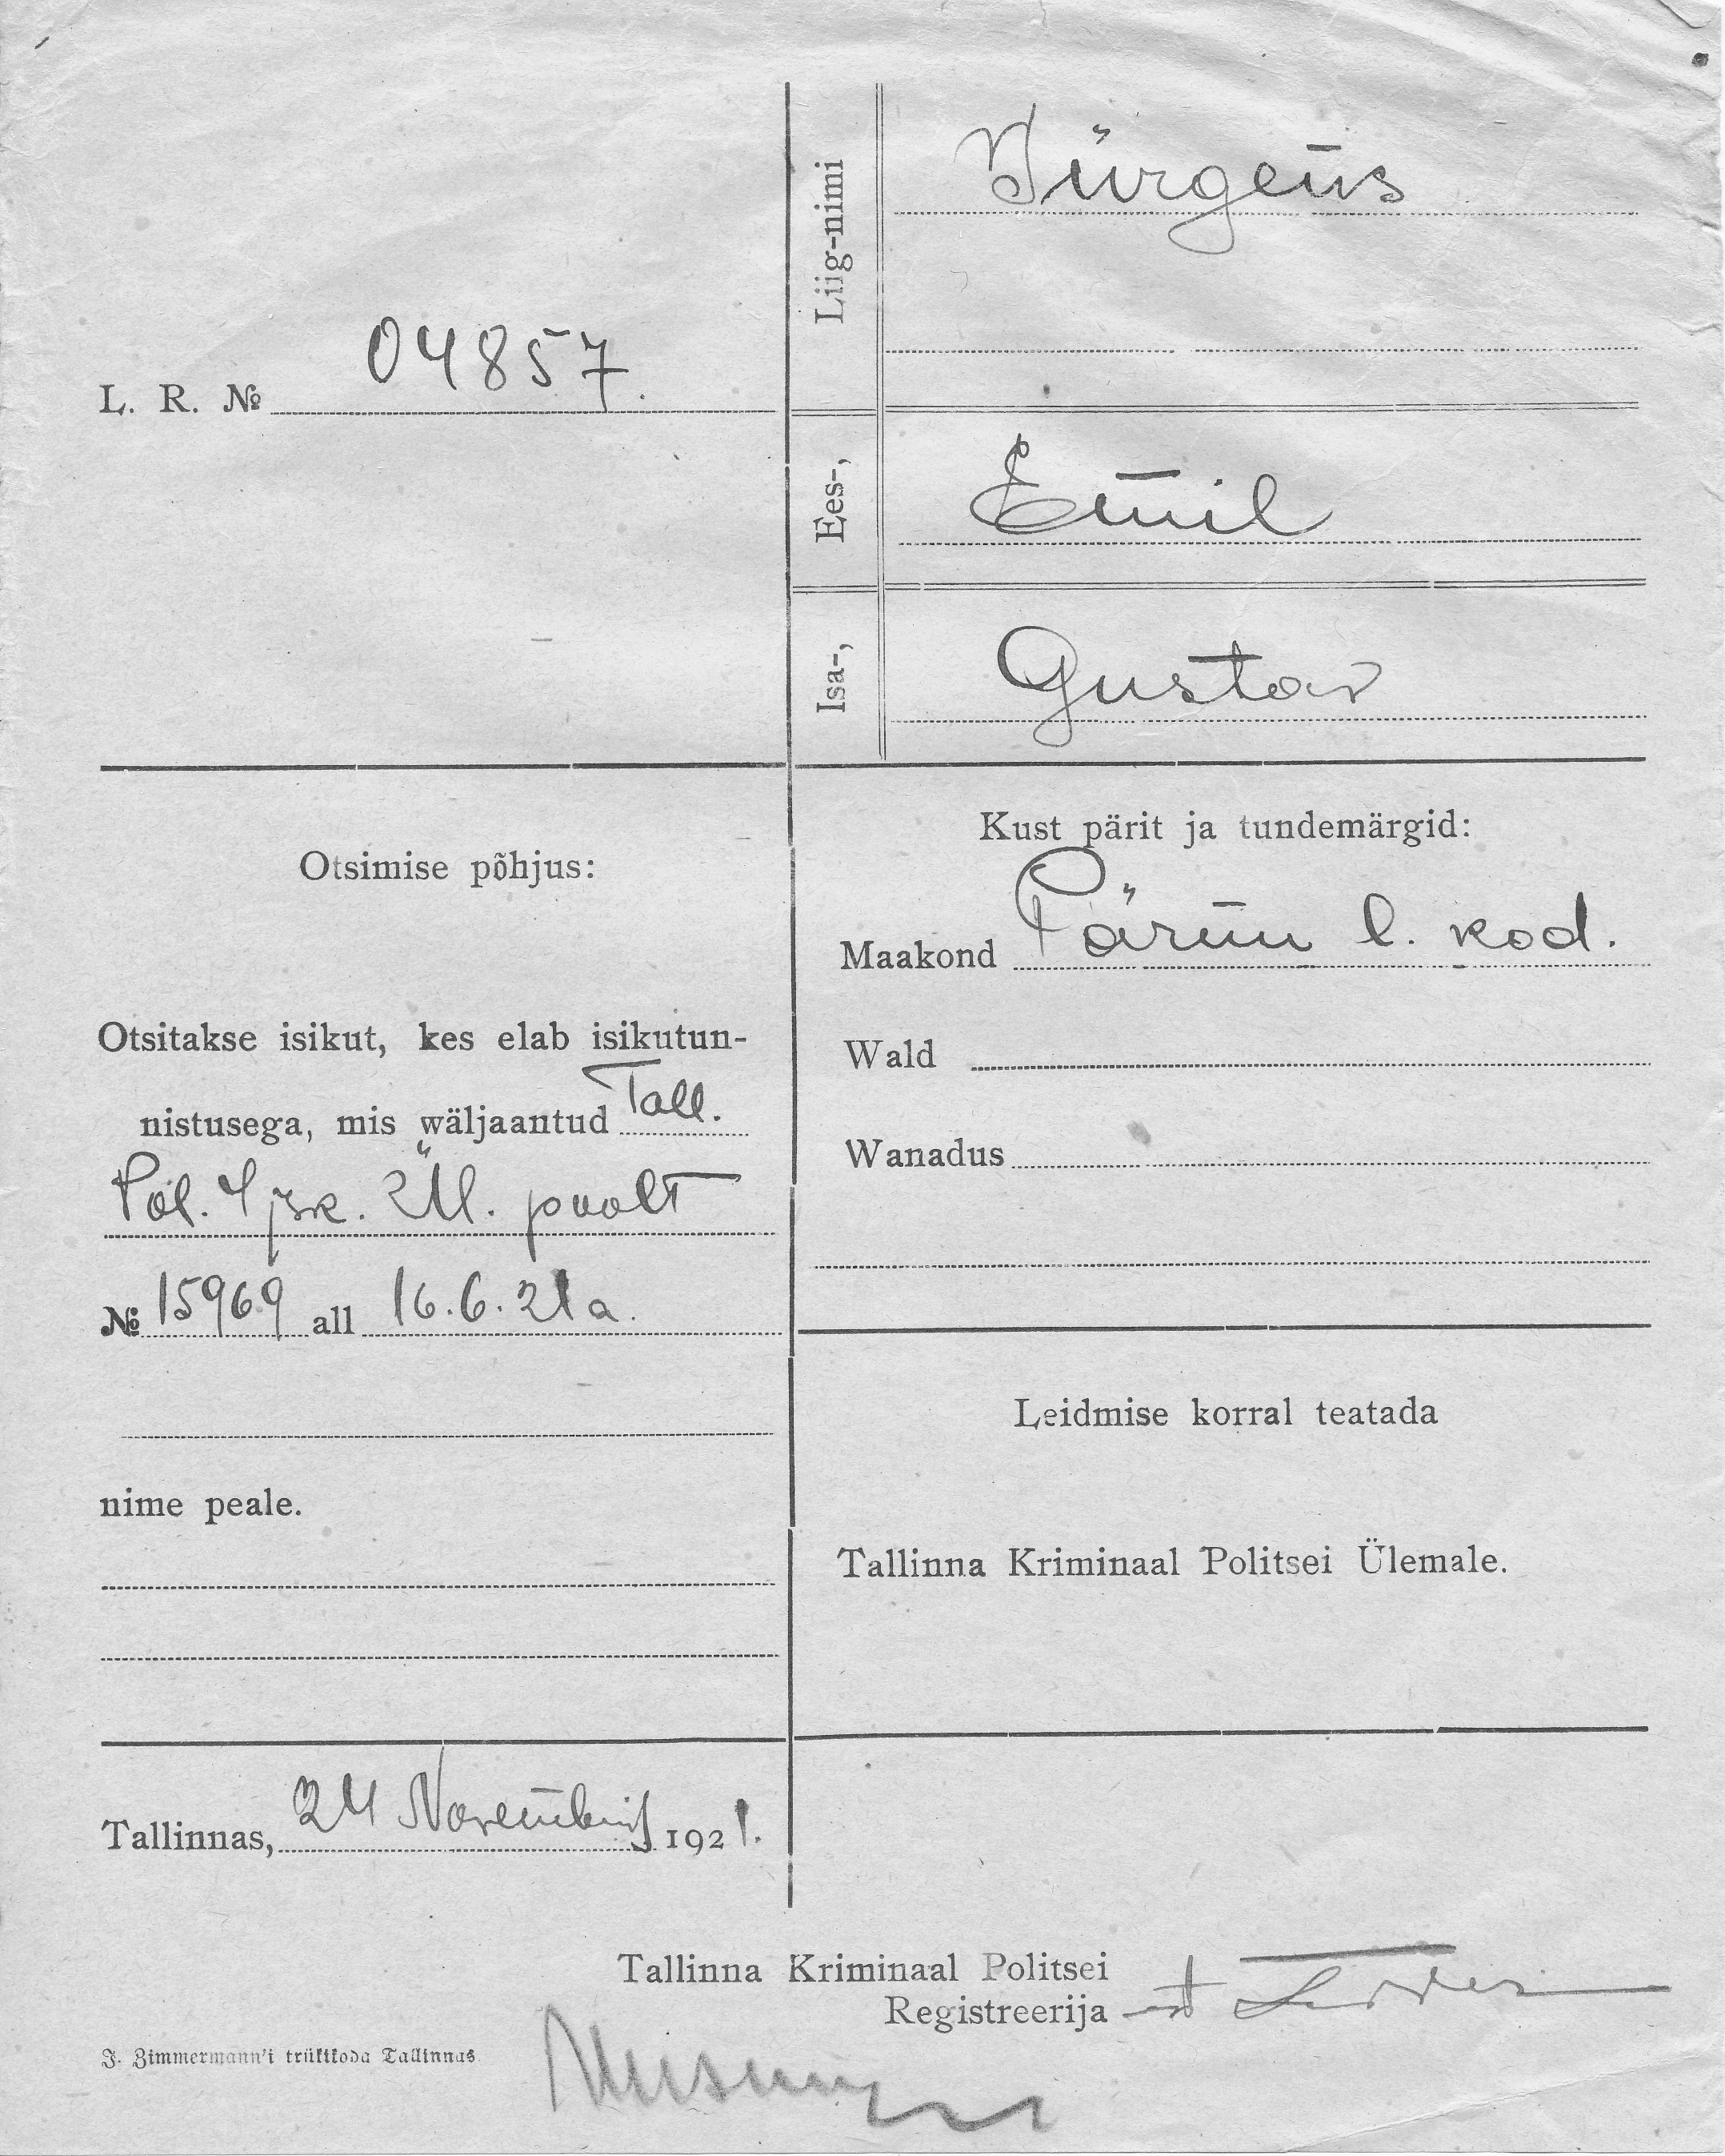 Liig-nimi
Jürgens
L. R. № 04857.
Ees-,
Emil
Isa-,
Gustav
Otsimise põhjus:
Otsitakse isikut, kes elab isikutun-
nistusega, mis wäljaantud Tall.
Pol. 4 jsk. Ül. poolt
№ 15969 all 16.6.21 a.
nime peale.
Kust pärit ja tundemärgid:
Maakond Pärnu l. kod.
Wald
Wanadus
Leidmise korral teatada
Tallinna Kriminaal Politsei Ülemale.
Tallinnas, 24 Novembril 1921.
Tallinna Kriminaal Politsei
Registreerija
J. Zimmermann'i trükikoda Tallinnas